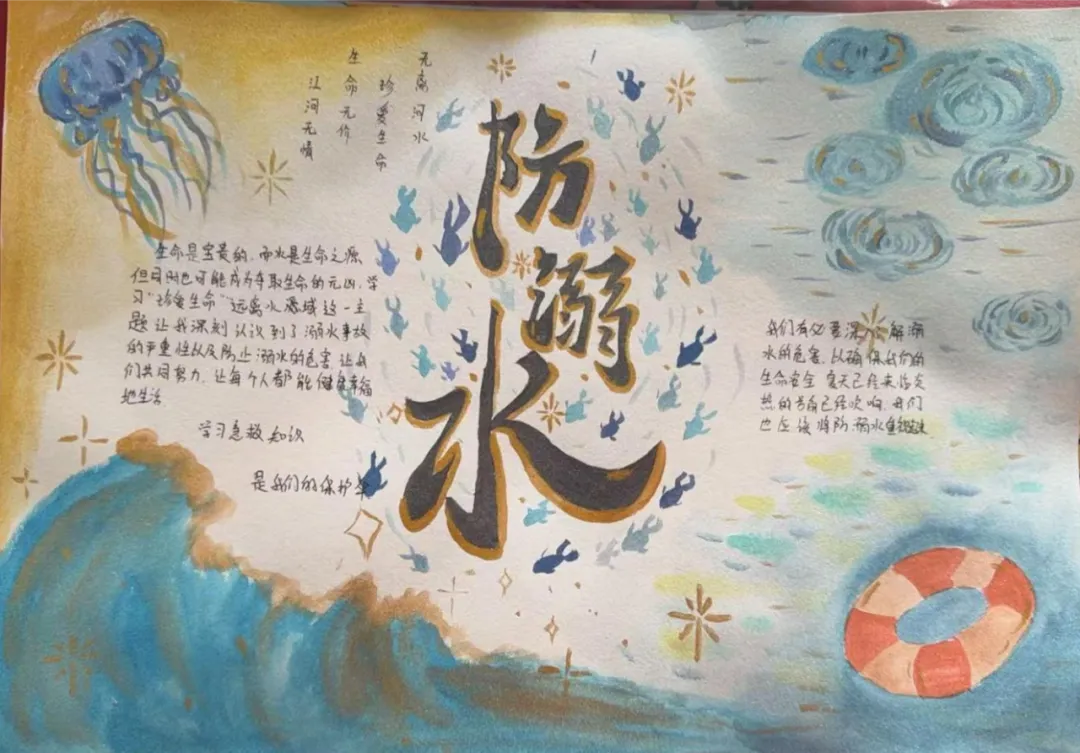 防溺水
无离河水
珍爱生命
生命无价
江河无情
生命是宝贵的,而水是生命之源
但同时也可能成为夺取生命的元凶,学
习"珍爱生命""远离水源域这一主
题让我深刻认识到了溺水事故
的严重性以及防止溺水的危害,让我
们共同努力,让每个人都能健康幸福
地生活
学习急救知识
是我们的保护伞
我们有必要深入了解溺
水的危害,以确保我们的
生命安全 夏天已经来临炎
热的号角已经吹响,我们
也应该将防溺水